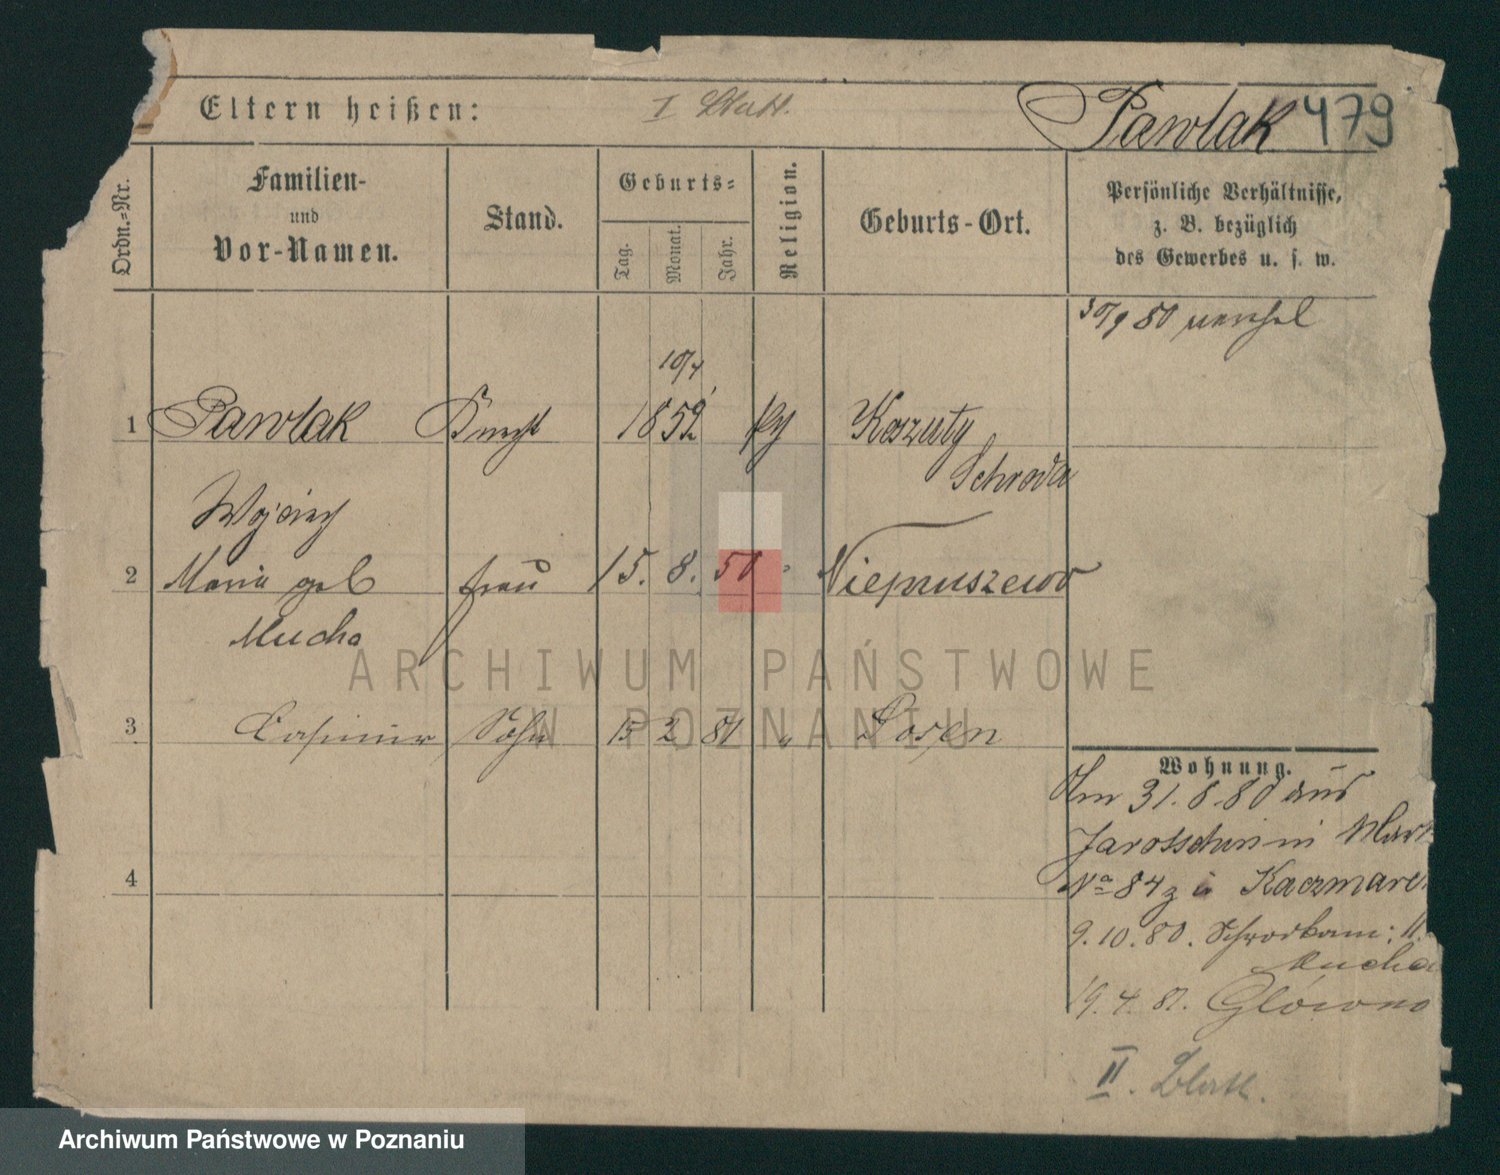 Eltern heißen:
I Blatt.
Pawlak 479
Ordn.-Nr.
Familien-
und
Vor-Namen.
Stand.
Geburts-
Tag.
Monat.
Jahr.
Religion.
Geburts-Ort.
Persönliche Verhältnisse,
z. B. bezüglich
des Gewerbes u. s. w.
30/9 80
10/4
1 Pawlak Knecht 1852 Koszuty
Schroda
Wojciech
2 Maria geb Frau 15. 8. 50 Niepruszewo
Mucha
3 Casimir Sohn 15 2 81 " Posen
Wohnung.
Am 31.8.80 aus
Jarotschin in Mark
No 84 Kaczmarek
9.10.80. 11.
Mucha
19.4.81. Glówno
4
II. Blatt.
ARCHIWUM PAŃSTWOWE
W POZNANIU
Archiwum Państwowe w Poznaniu